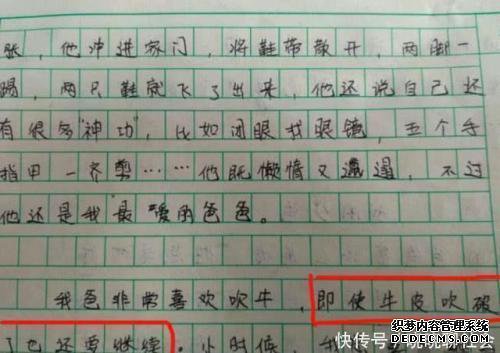 张，他冲进家门，将鞋带散开，两脚一
踢，两只鞋就飞了出来，他还说自己还
有很多"神功"，比如闭眼找眼镜，五个手
指甲一齐剪……他既懒惰又邋遢，不过
他还是我"最"爱的爸爸。
我爸非常喜欢吹牛，即使牛皮吹破
了也还要继续。小时候，我
快传号/晓晓聊社会